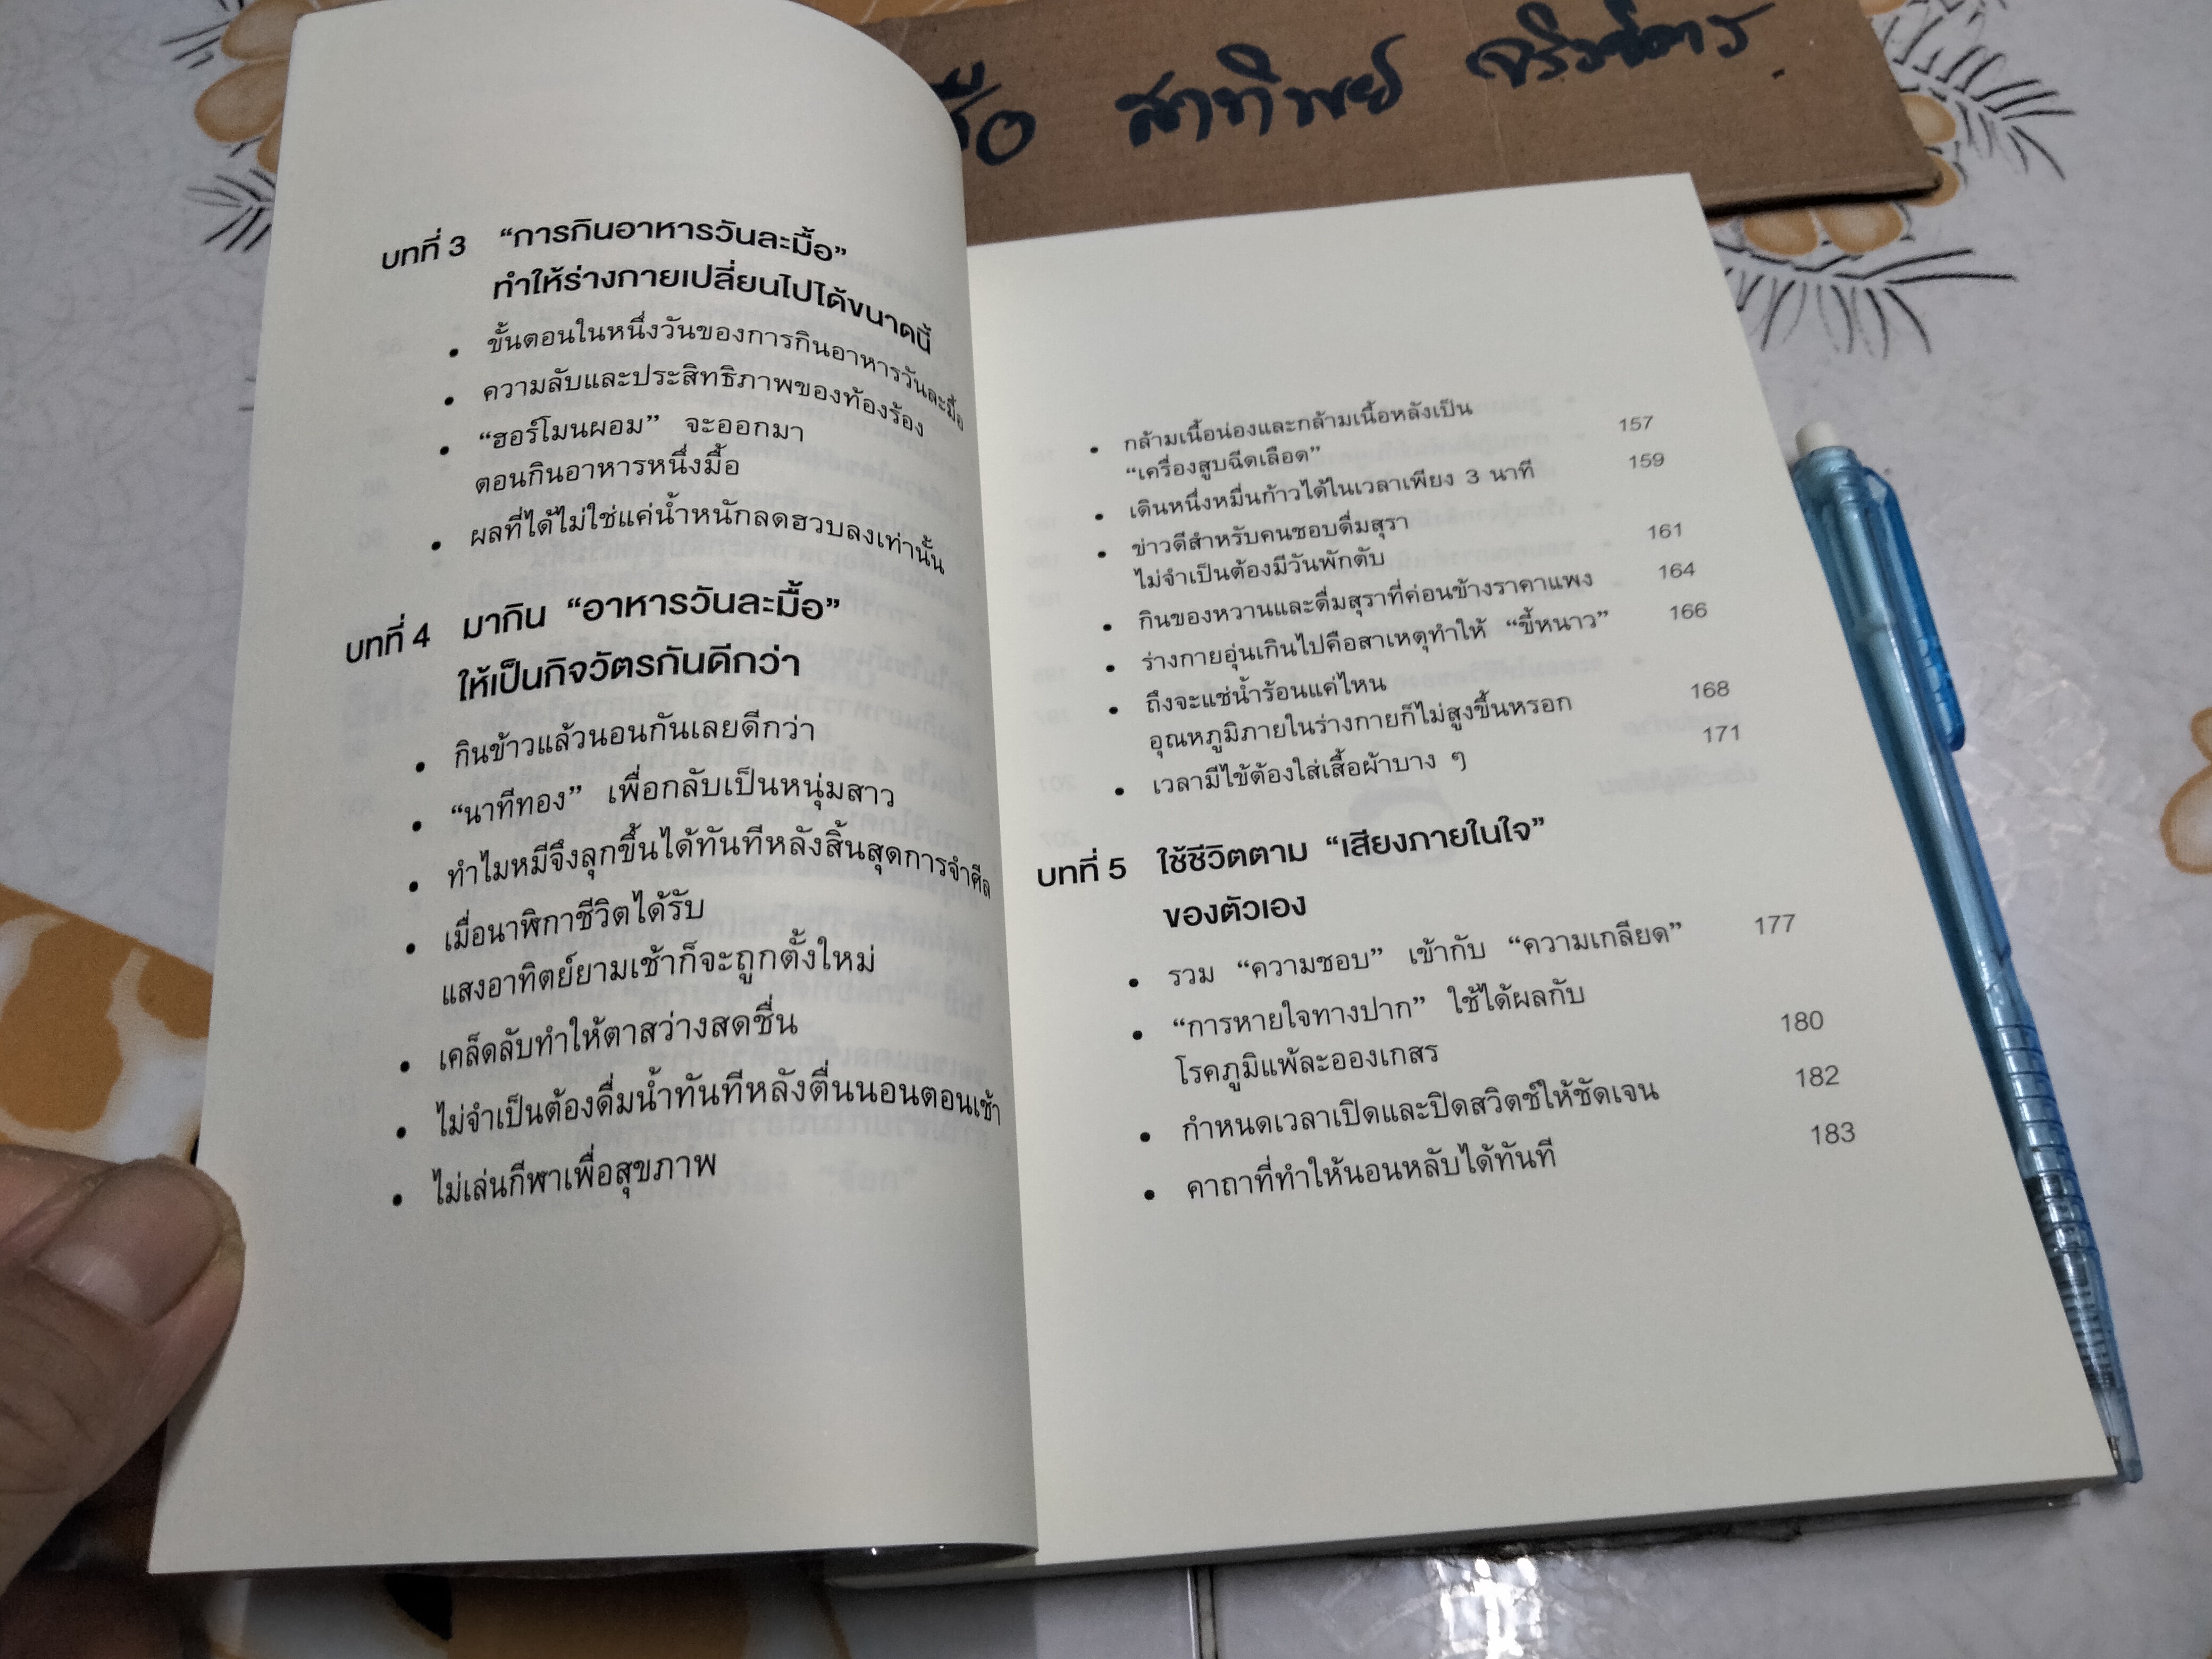 สาทิพย์
บทที่ 3 “การกินอาหารวันละมื้อ”
ทำให้ร่างกายเปลี่ยนไปได้ขนาดนี้
• ขั้นตอนในหนึ่งวันของการกินอาหารวันละมื้อ
• ความลับและประสิทธิภาพของท้องร้อง
• “ฮอร์โมนผอม” จะออกมา
ตอนกินอาหารหนึ่งมื้อ
• ผลที่ได้ไม่ใช่แค่น้ำหนักลดฮวบลงเท่านั้น
บทที่ 4 มากิน “อาหารวันละมื้อ”
ให้เป็นกิจวัตรกันดีกว่า
• กินข้าวแล้วนอนกันเลยดีกว่า
• “นาทีทอง” เพื่อกลับเป็นหนุ่มสาว
• ทำไมหมีจึงลุกขึ้นได้ทันทีหลังสิ้นสุดการจำศีล
• เมื่อนาฬิกาชีวิตได้รับ
แสงอาทิตย์ยามเช้าก็จะถูกตั้งใหม่
• เคล็ดลับทำให้ตาสว่างสดชื่น
• ไม่จำเป็นต้องดื่มน้ำทันทีหลังตื่นนอนตอนเช้า
• ไม่เล่นกีฬาเพื่อสุขภาพ
• กล้ามเนื้อน่องและกล้ามเนื้อหลังเป็น
“เครื่องสูบฉีดเลือด” 157
• เดินหนึ่งหมื่นก้าวได้ในเวลาเพียง 3 นาที 159
• ข่าวดีสำหรับคนชอบดื่มสุรา
ไม่จำเป็นต้องมีวันพักตับ 161
• กินของหวานและดื่มสุราที่ค่อนข้างราคาแพง 164
• ร่างกายอุ่นเกินไปคือสาเหตุทำให้ “ขี้หนาว” 166
• ถึงจะแช่น้ำร้อนแค่ไหน
อุณหภูมิภายในร่างกายก็ไม่สูงขึ้นหรอก 168
• เวลามีไข้ต้องใส่เสื้อผ้าบาง ๆ 171
บทที่ 5 ใช้ชีวิตตาม “เสียงภายในใจ”
ของตัวเอง
• รวม “ความชอบ” เข้ากับ “ความเกลียด” 177
• “การหายใจทางปาก” ใช้ได้ผลกับ
โรคภูมิแพ้ละอองเกสร 180
• กำหนดเวลาเปิดและปิดสวิตช์ให้ชัดเจน 182
• คาถาที่ทำให้นอนหลับได้ทันที 183